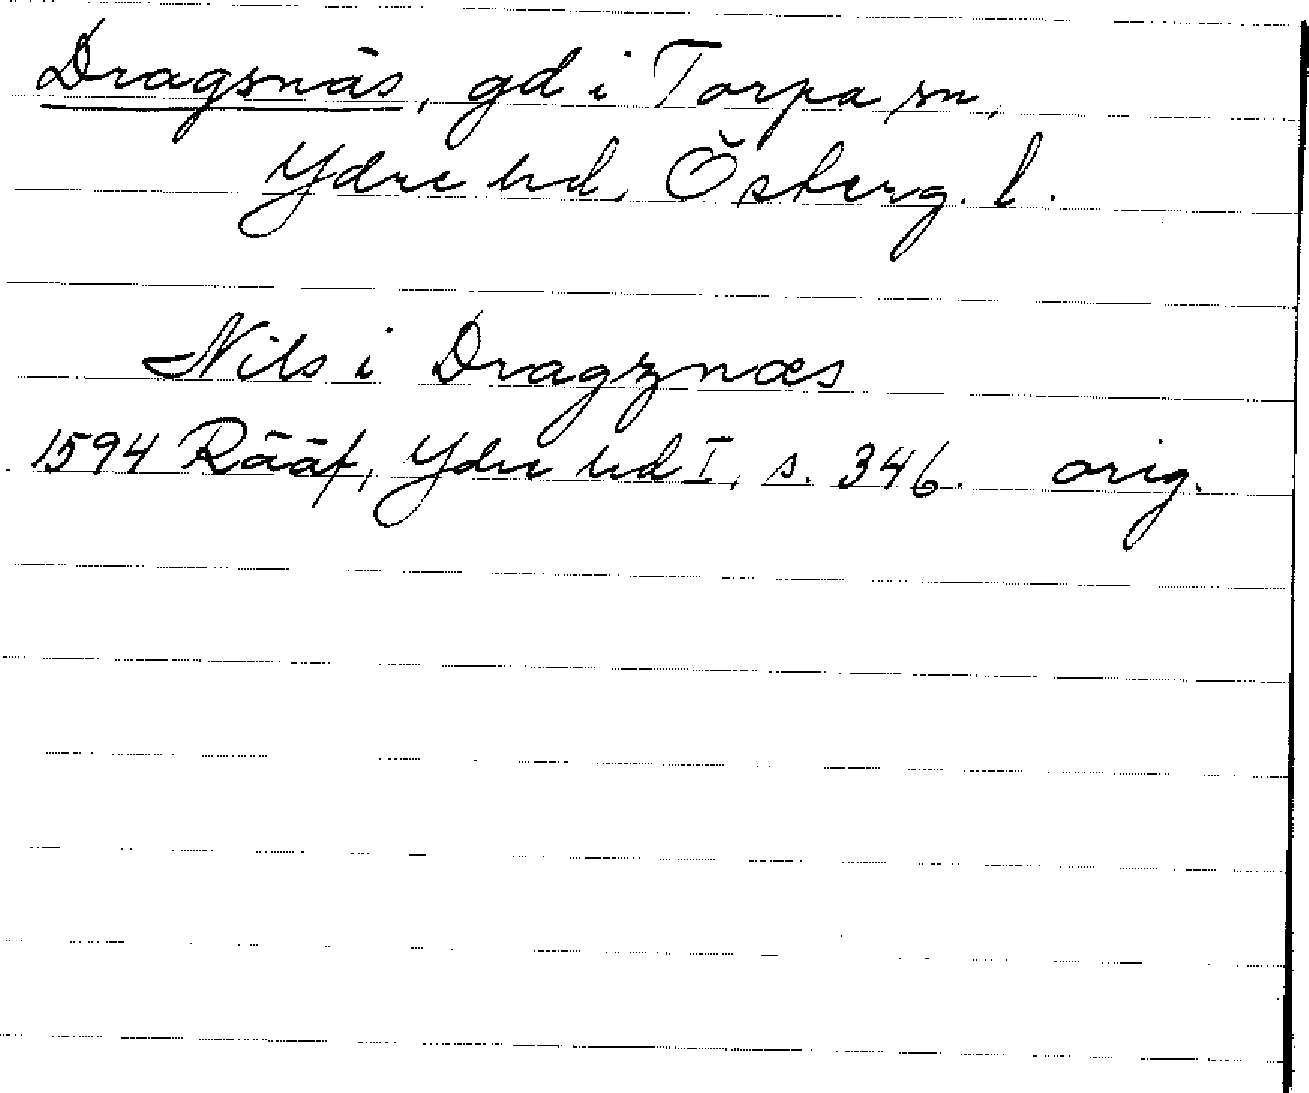 Dragsnäs, gd i Torpa sn,
Ydre hd, Österg. l.
Nils i Dragznæs
1594 Rääf, Ydre hd I, s. 346. orig.